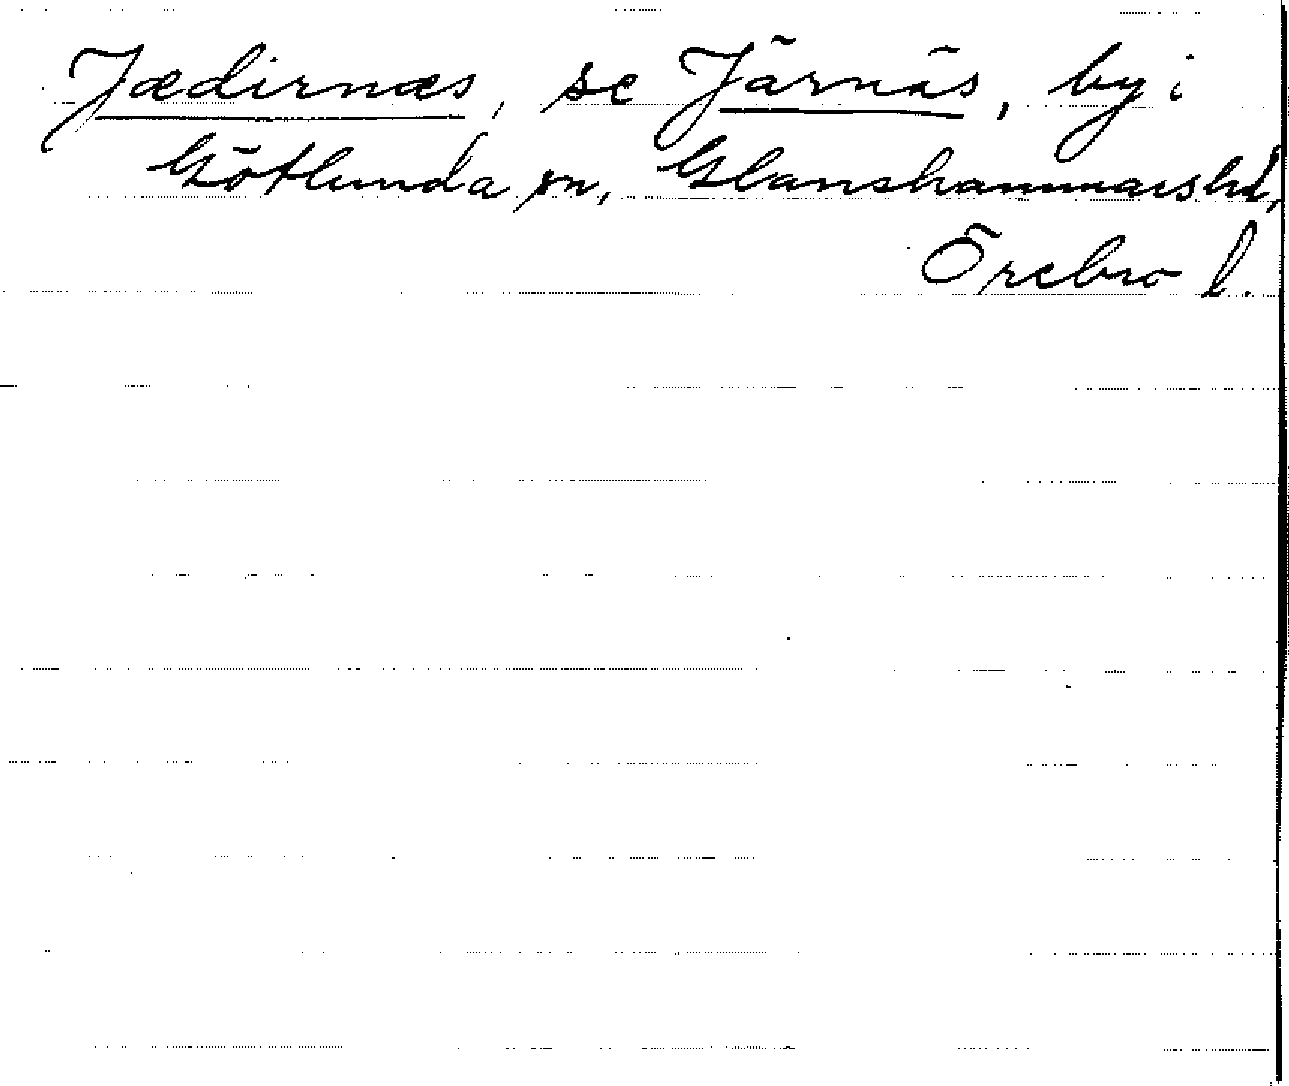 Jædirnæs, se Järnäs, by i
Götlunda sn, Glanshammars hd,
Örebro l.